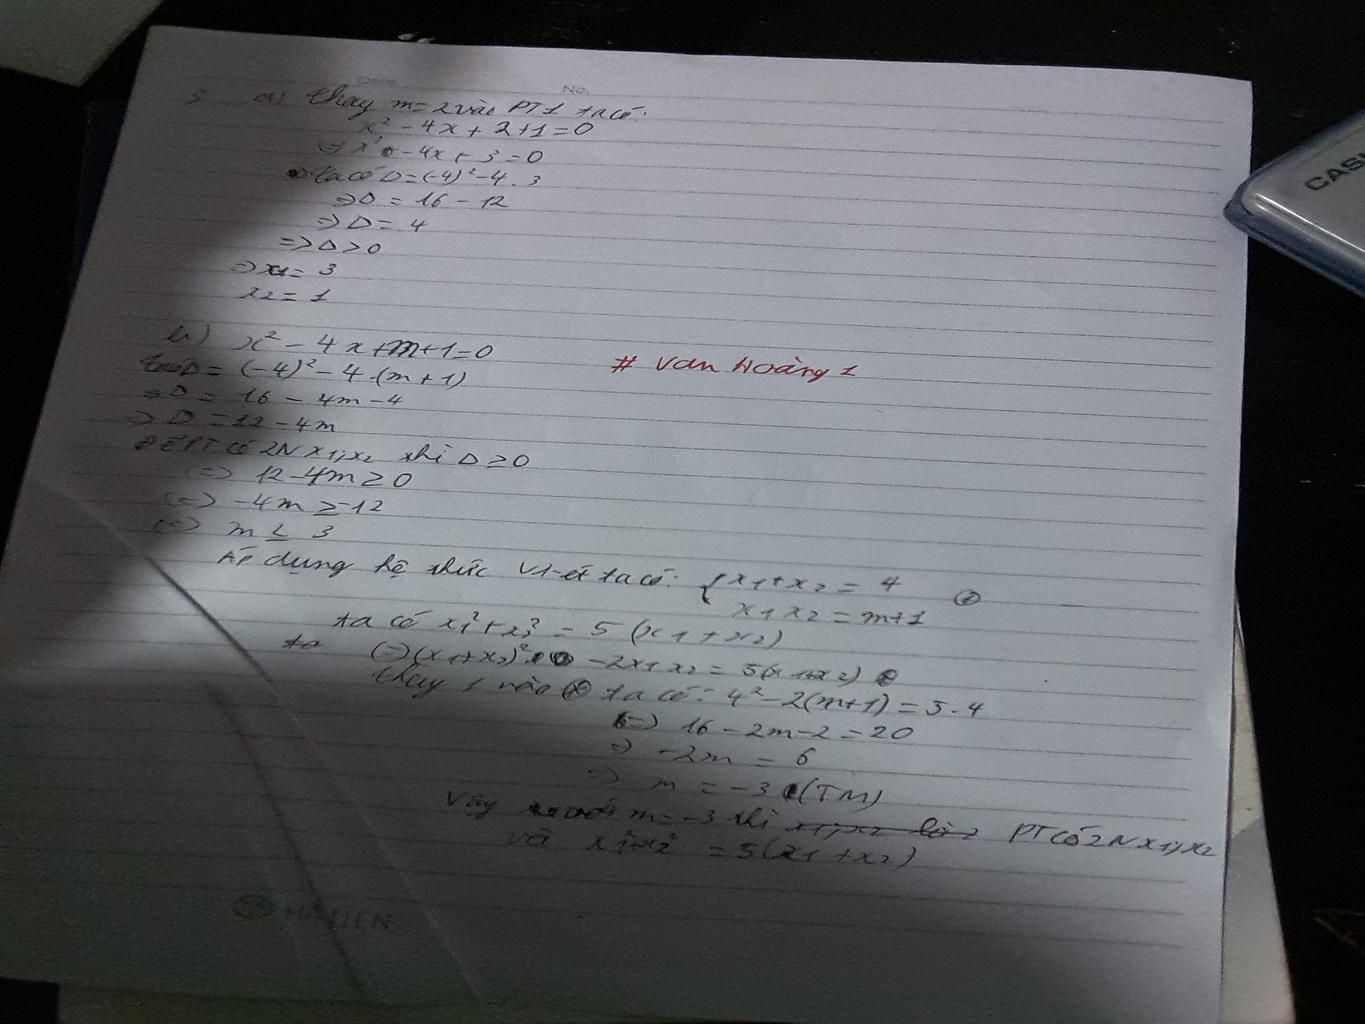 Date No.
5 a) thay m = 2 vào PT1 ta có:
x² - 4x + 2 + 1 = 0
(=) x² - 4x + 3 = 0
ta có Δ = (-4)² - 4.3
=> Δ = 16 - 12
=> Δ = 4
=> Δ > 0
=> x1 = 3
x2 = 1
b) x² - 4x + m + 1 = 0
ta có Δ = (-4)² - 4.(m + 1)
=> Δ = 16 - 4m - 4
=> Δ = 12 - 4m
# Van Hoàng 1
Để PT có 2N x1, x2 khi Δ ≥ 0
(=) 12 - 4m ≥ 0
(=) -4m ≥ -12
(=) m ≤ 3
Áp dụng hệ thức Vi-ét ta có: { x1 + x2 = 4
x1 x2 = m + 1
ta có x1² + x2² = 5 (x1 + x2)
ta (=) (x1 + x2)² - 2x1 x2 = 5(x1 + x2)
thay 1 vào ta có: 4² - 2(m + 1) = 5.4
(=) 16 - 2m - 2 = 20
=> -2m = 6
=> m = -3 (TM)
Vậy m = -3 thì x1, x2 là 2 PT có 2N x1, x2
và x1² + x2² = 5(x1 + x2)
HẢI TIẾN
CAS